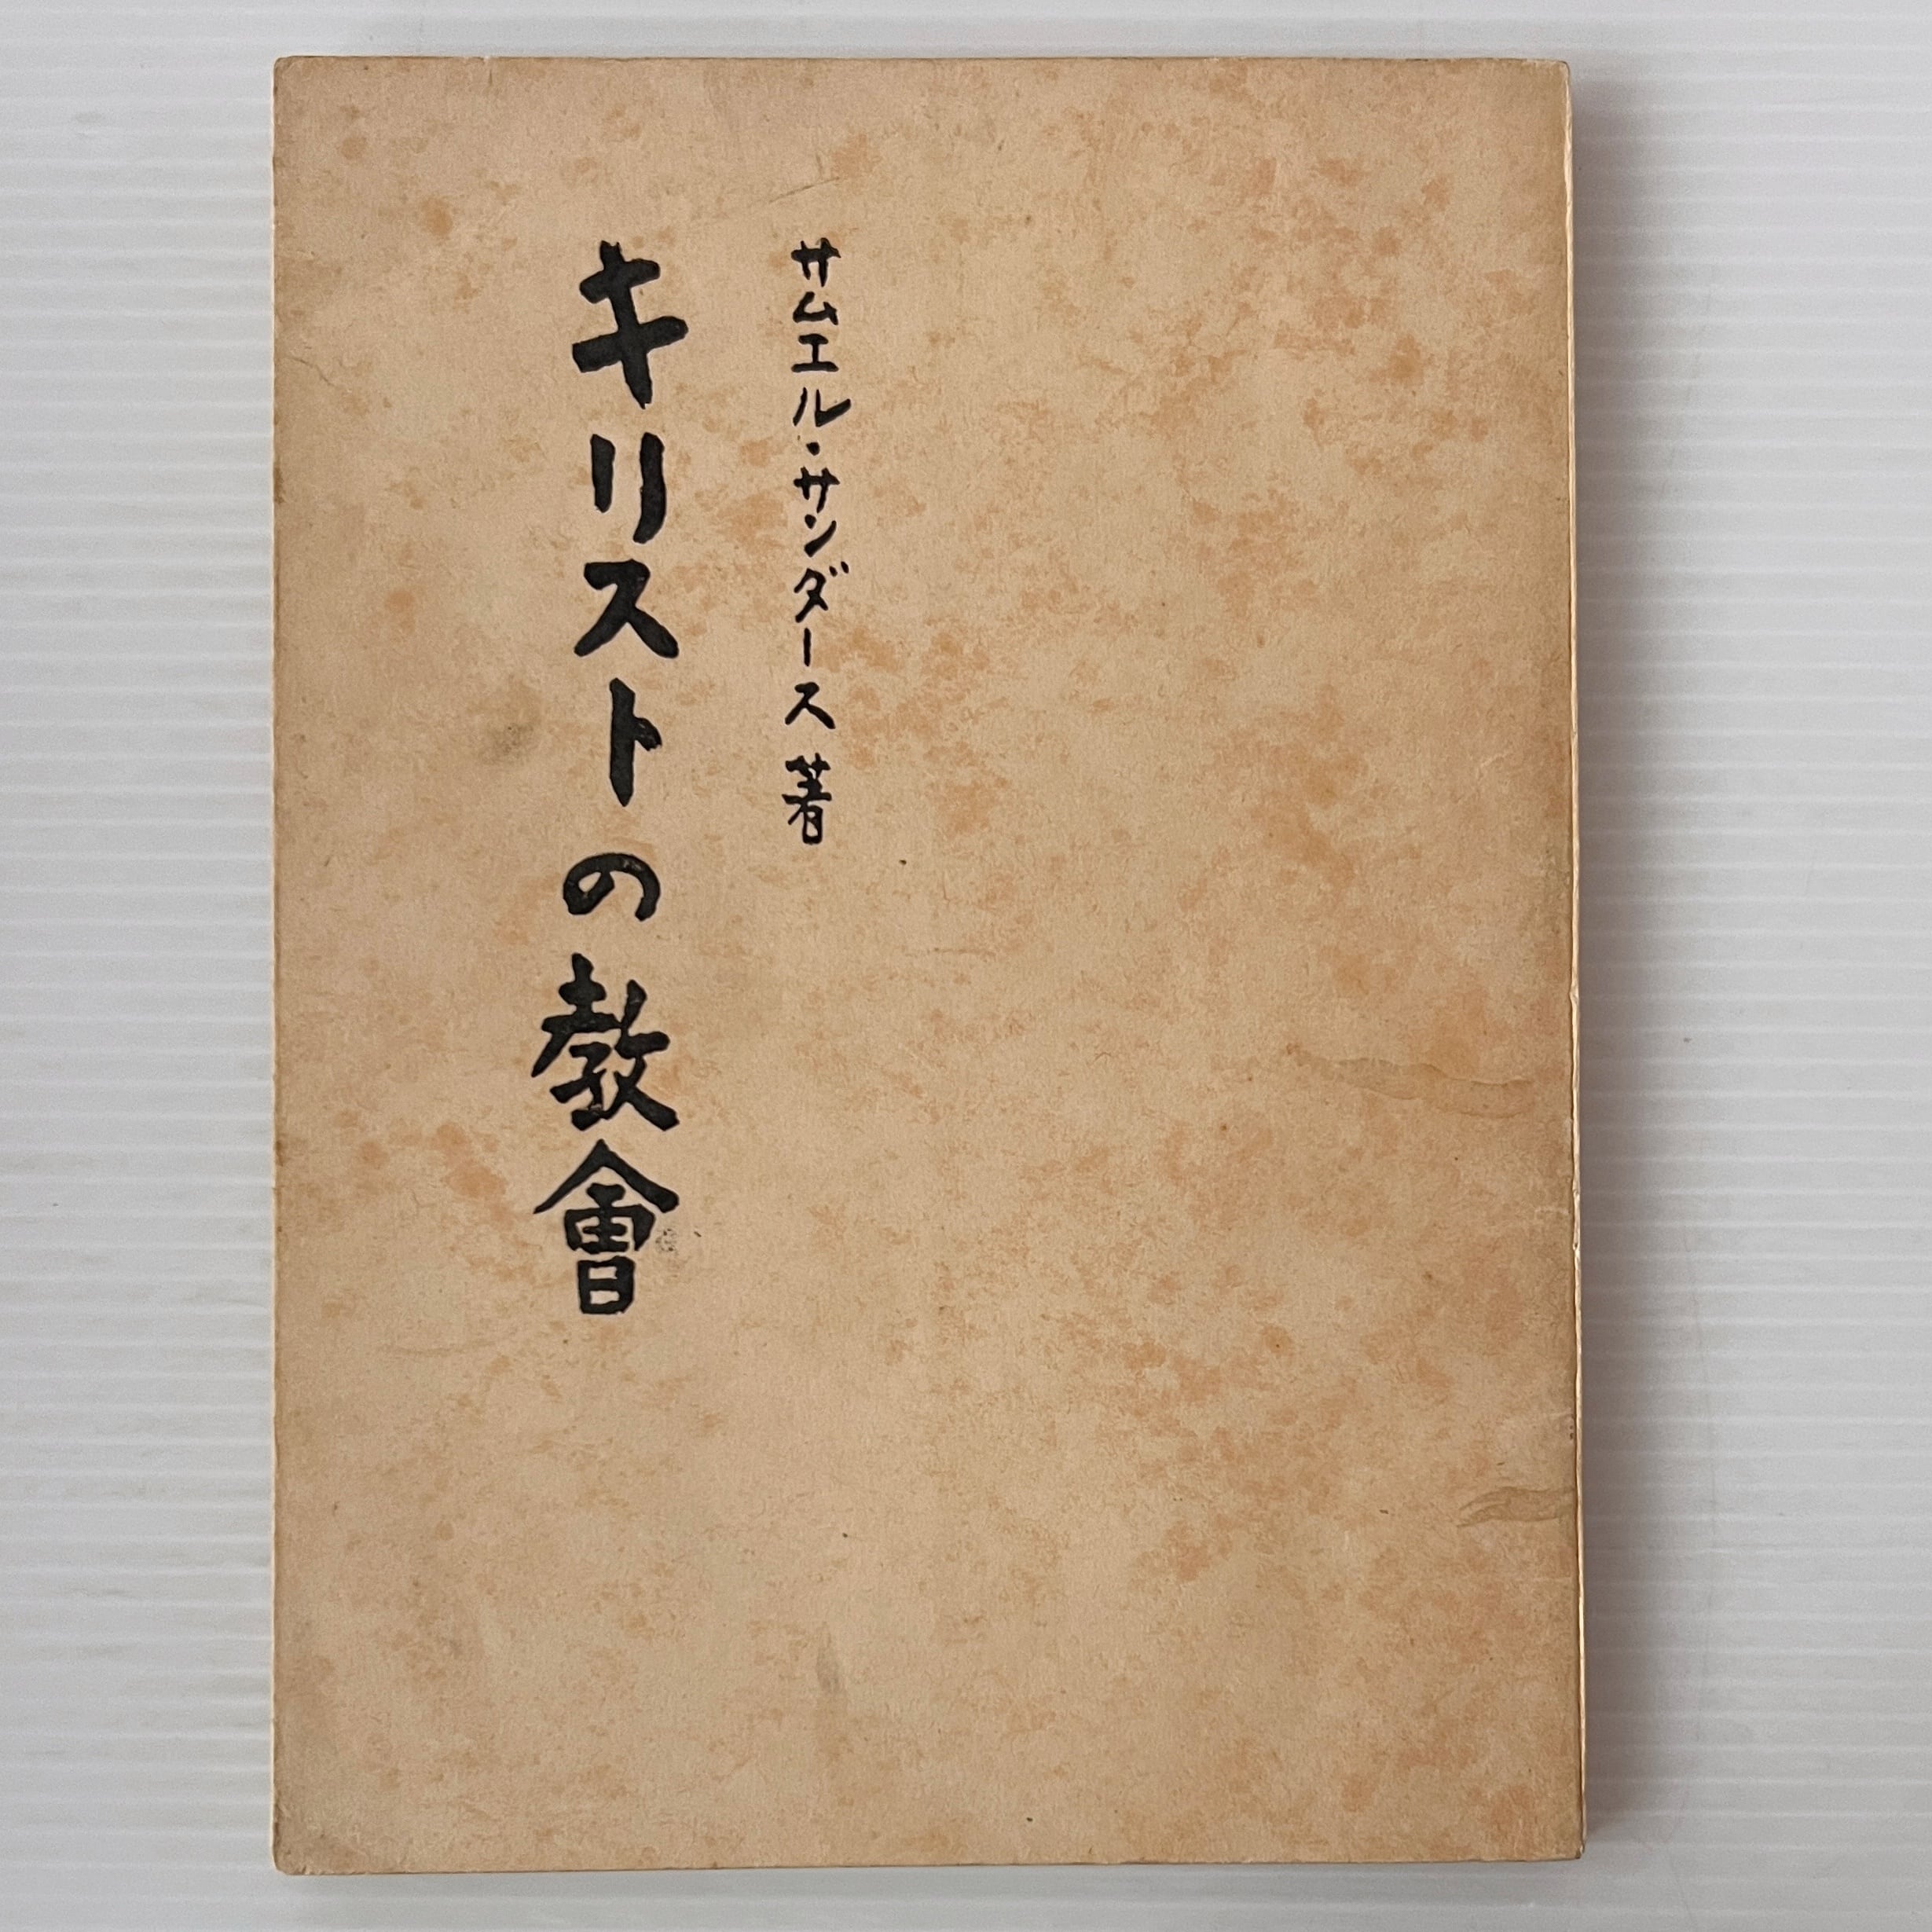 サムエル・サンダース 著
キリストの教會